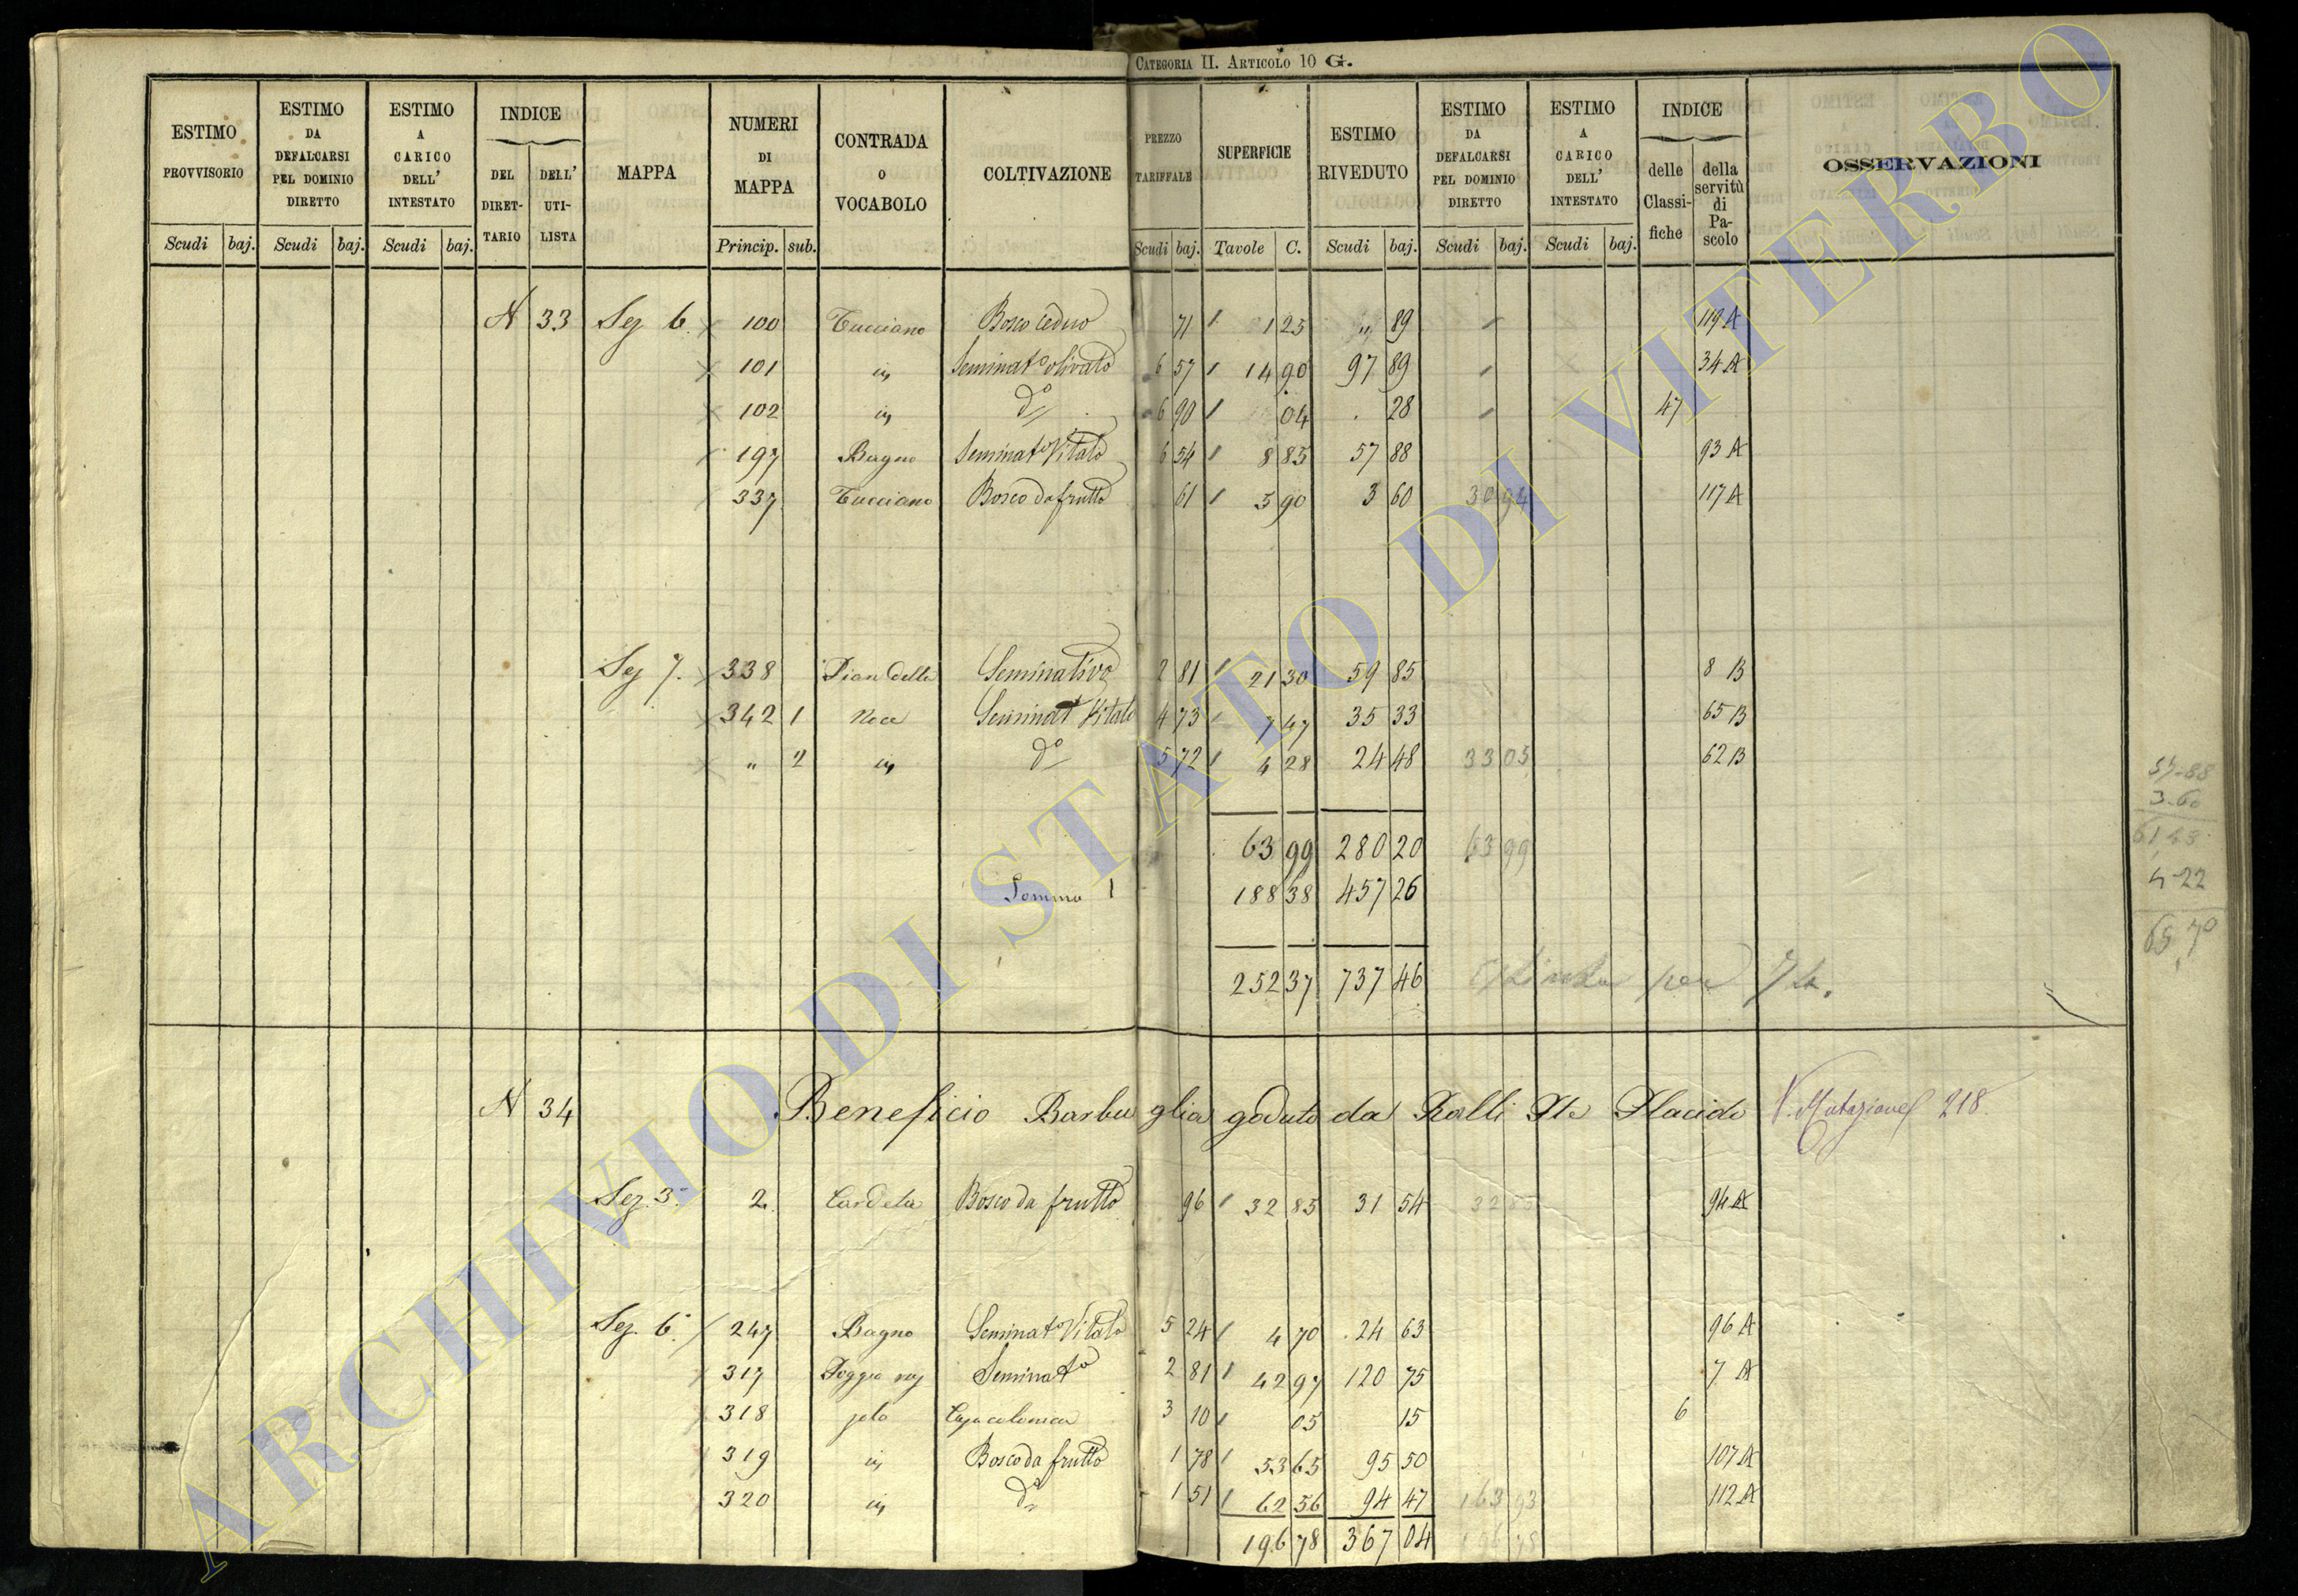 CATEGORIA II. ARTICOLO 10 G.
ESTIMO PROVVISORIO Scudi baj.
ESTIMO DA DEFALCARSI PEL DOMINIO DIRETTO Scudi baj.
ESTIMO A CARICO DELL' INTESTATO Scudi baj.
INDICE DEL DIRET-TARIO DELL' UTI-LISTA
MAPPA
NUMERI DI MAPPA Princip. sub.
CONTRADA O VOCABOLO
COLTIVAZIONE
PREZZO TARIFFALE Scudi baj.
SUPERFICIE Tavole C.
ESTIMO RIVEDUTO Scudi baj.
ESTIMO DA DEFALCARSI PEL DOMINIO DIRETTO Scudi baj.
ESTIMO A CARICO DELL' INTESTATO Scudi baj.
INDICE delle Classi-fiche della servitù di Pa-scolo
OSSERVAZIONI
N 33 Sez 6. 100 Tucciano Bosco Ceduo 71 1 25 " 89 119 A
101 in Seminato olivato 6 57 14 90 97 89 34 A
102 in do 6 90 04 28 47
197 Bagno Seminato Vitato 6 54 8 85 57 88 93 A
337 Tucciano Bosco da frutto 61 5 90 3 60 30 94 117 A
Sez 7. 338 Pian della Seminativo 2 81 21 30 59 85 8 B
342 1 Noce Seminat Vitato 4 73 7 47 35 33 65 B
" 2 in do 5 72 4 28 24 48 33 05 62 B
63 99 280 20 63 99
Somma 188 38 457 26
252 37 737 46
57-88
3-60
61 48
4-22
65 70
N 34 Beneficio Barbuglia goduto da Ralli Placido V. Mutazione 218.
Sez. 3a 2. Cardeta Bosco da frutto 96 32 85 31 54 32 85 94 A
Sez. 6a 247 Bagno Seminato Vitato 5 24 4 70 24 63 96 A
317 Poggio Seminato 2 81 42 97 120 75 7 A
318 Casa colonica 3 10 05 15 6
319 in Bosco da frutto 1 78 53 65 95 50 107 A
320 in do 1 51 62 56 94 47 163 93 112 A
196 78 367 04 196 78
ARCHIVIO DI STATO DI VITERBO